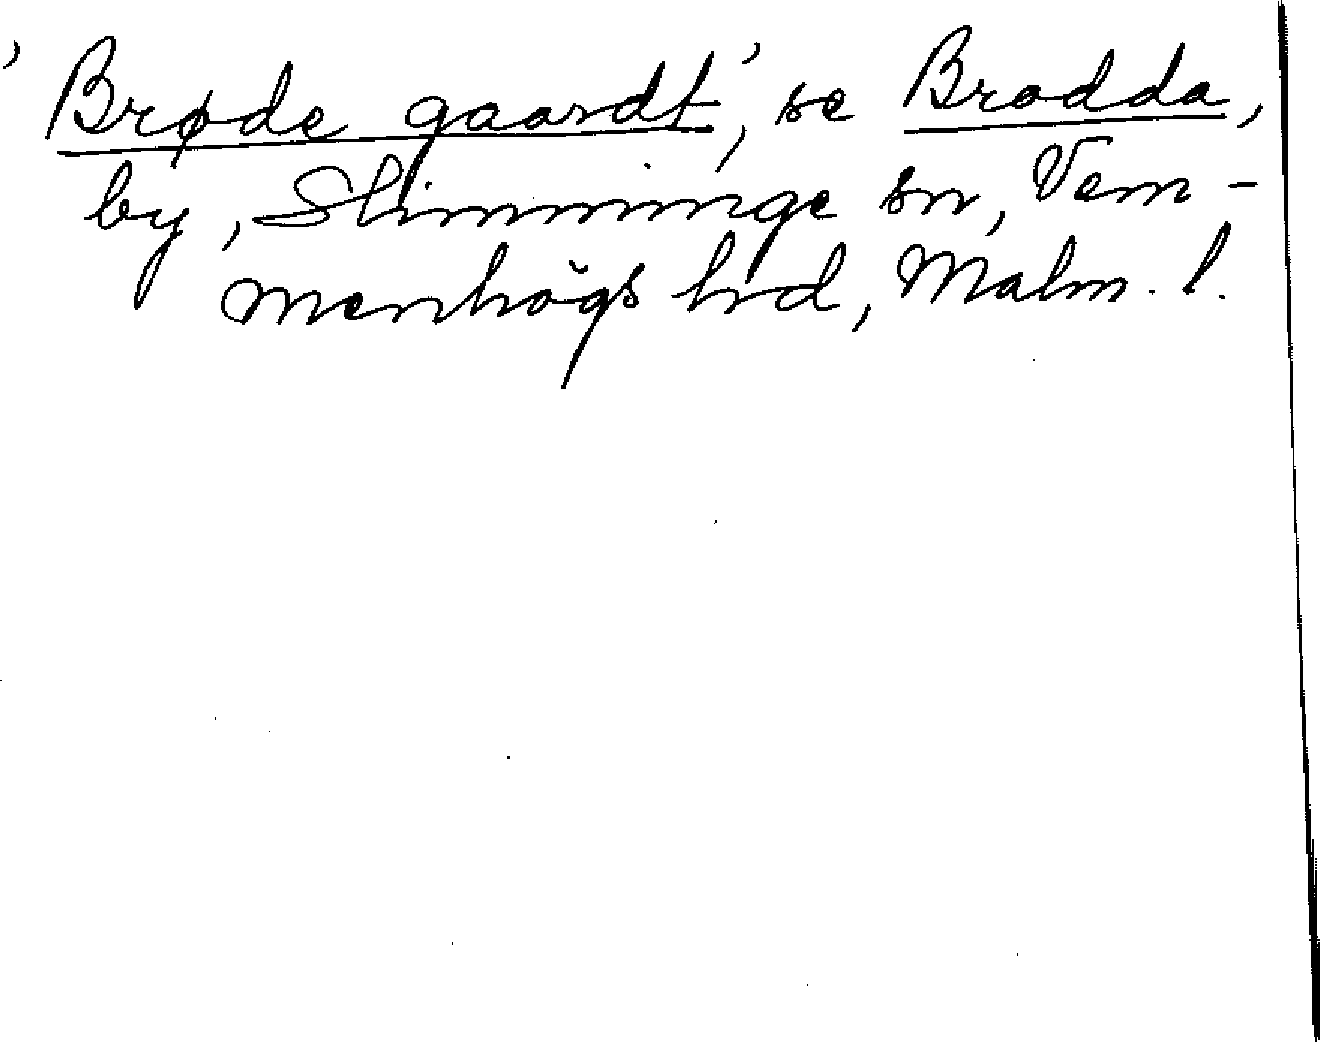 'Brøde gaardt', se Brodda,
by, Slimminge sn, Vem-
menhögs hrd, Malm. l.